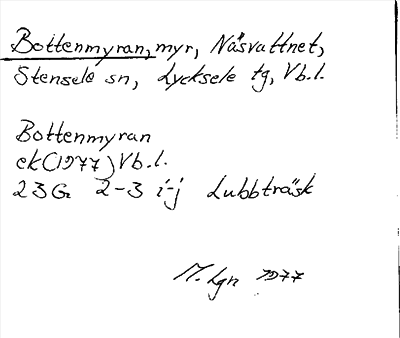 Bottenmyran, myr, Näsvattnet,
Stensele sn, Lycksele tg, Vb.l.
Bottenmyran
ek (1977) Vb.l.
23G 2-3 i-j Lubbträsk
M. Lgn 1977